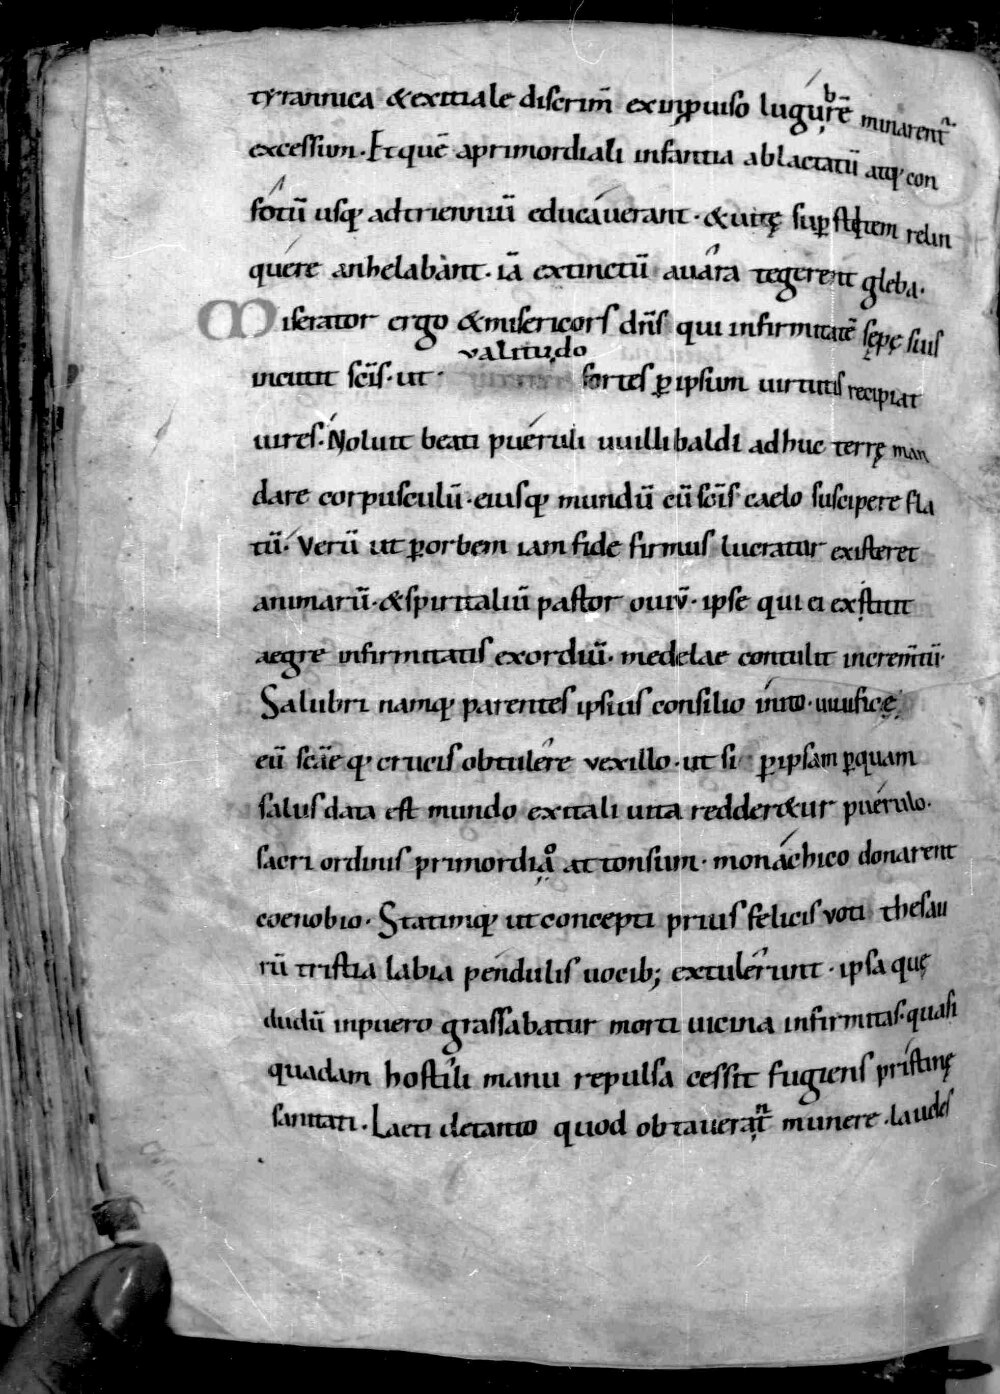 tyrannica &exitiale discrim̄ eximproviso lugubrē minarent᷒
excessum. Et quē aprimordiali infantia ablactatū atq; con
sotū usq; adtrienniū educaverant. &vitę sup̱stitem relin
quere anhelabant. iā extinctū avara tegerent gleba.
Miserator ergo &misericors dn̄s qui infirmitatē sępę suis
incutit sc̄is. ut valitudo fortes p̱ ipsum virtutis recipiat
vires. Noluit beati pueruli uuillibaldi adhuc terrę man
dare corpusculū. eiusq; mundū cū sc̄is caelo suscipere fla
tū. Verū ut p̱orbem iam fide firmus lucratur existeret
animarū. &spiritaliū pastor oviū. ipse qui ei exstitit
aegre infirmitatis exordiū. medelae contulit increm̄tū.
Salubri namq; parentes ipsius consilio inito. vivificę
eū sc̄ae q; crucis obtulere vexillo. ut si p̱ipsam p̱quam
salus data est mundo exitali vita redder&ur puerulo.
sacri ordinis primordio attonsum. monachico donarent
coenobio. Statimq; ut concepti prius felicis voti thesau
rū tristia labia pendulis vocib; extulerunt. ipsa quę
dudū inpuero grassabatur morti vicina infirmitas. quasi
quadam hostili manu repulsa cessit fugiens pristinę
sanitati. Laeti detanto quod obtaverant munere. laudes